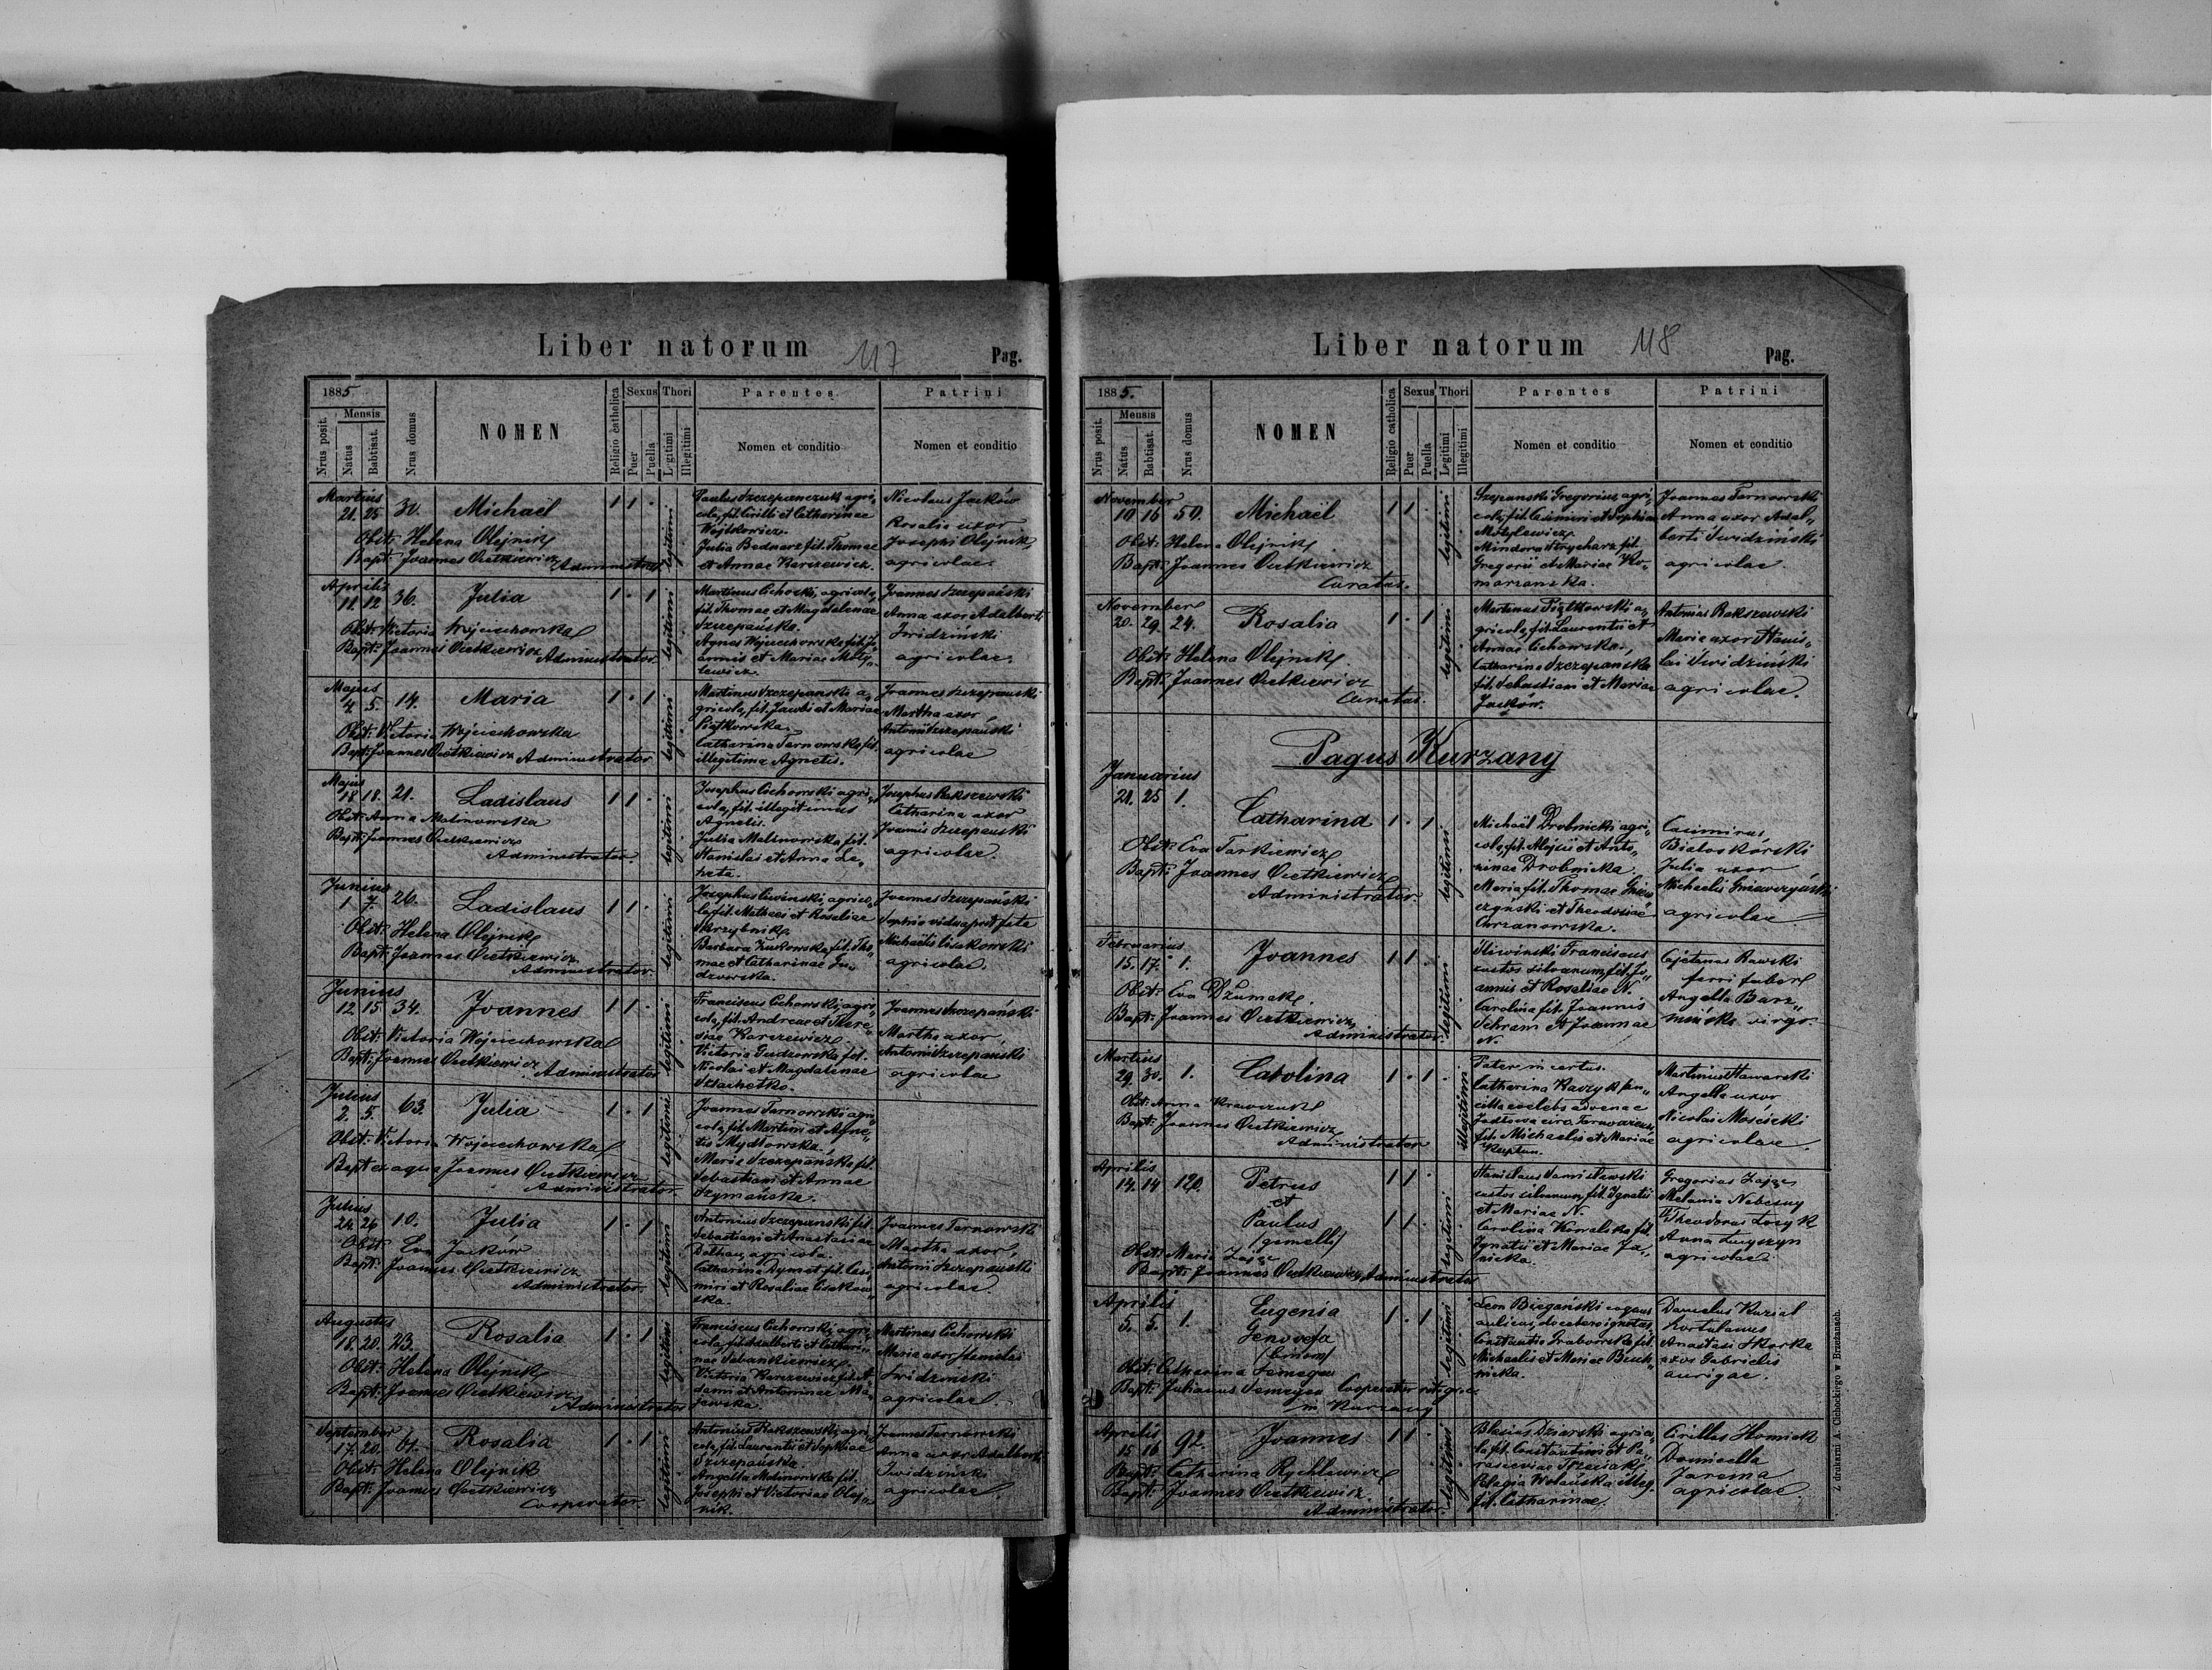 Liber natorum 117 Pag.
1885
Nrus posit.
Mensis
Natus
Babtisat.
Nrus domus
NOMEN
Religio catholica
Sexus
Puer
Puella
Thori
Legitimi
Illegitimi
Parentes
Nomen et conditio
Patrini
Nomen et conditio
Martius
21. 25 30. Michaël 1 1 .
Obst: Helena Olejnik
Bapt: Joannes Cietkiewicz Administrator
legitimi
Paulus Szczepanczuk agri„
cola, fil. Cirilli et Catharinae
Wojtkowicz.
Julia Bednarz fil. Thomae
et Annae Karczewicz.
Nicolaus Jacków
Rosalia uxor
Josephi Olejnik
agricolae.
Aprilis
11 12 36. Julia 1 . 1
Obst: Victoria Wojciechowska
Bapt: Joannes Cietkiewicz Administrator
legitimi
Martinus Cichocki, agricola,
fil. Thomae et Magdalenae
Szczepańska.
Agnes Wojciechowska fil. Jo
annis et Mariae Moty„
lewicz.
Joannes Szczepański
Anna uxor Adalberti
Swidziński
agricolae.
Majus
4. 5. 14. Maria 1 . 1
Obst: Victoria Wojciechowska
Bapt: Joannes Cietkiewicz Administrator
legitimi
Martinus Szczepanski a„
gricola, fil. Jacobi et Mariae
Piątkowska.
Catharina Tarnowska, fil.
illegitima Agnetis.
Joannes Szczepanski
Martha uxor
Antonii Szczepański
agricolae
Majus
18 18. 21. Ladislaus 1 1 .
Obst: Anna Malinowska
Bapt: Joannes Cietkiewicz
Administrator
legitimi
Josephus Cichowski agri„
cola, fil. illegitimus
Agnetis.
Julia Malinowska fil.
Stanislai et Anna
Josephus Rakszewski
Catharina uxor
Joannis Szczepański
agricolae.
Junius
1 7. 26. Ladislaus 1 1 .
Obst: Helena Olejnik
Bapt: Joannes Cietkiewicz
Administrator
legitimi
fil. Mathaei et Rosaliae
Barbara Żukowska, fil. Tho„
mae et Catharinae
Joannes Szczepański
Sophia vidua post fata
Michaëlis Cisakowski
agricolae.
Junius
12 15 34. Joannes 1 1 .
Obst: Victoria Wojciechowska
Bapt: Joannes Cietkiewicz Administrator
legitimi
Franciscus Cichowski, agri„
cola, fil. Andreae et There„
siae Karczewicz.
Victoria fil.
Nicolai et Magdalenae
Szlachetko.
Joannes Szczepański
Martha uxor
Antonii Szczepanski
agricolae
Julius
2. 5. 63. Julia 1 . 1
Obst: Victoria Wojciechowska
Bapt ex aqua Joannes Cietkiewicz
Administrator.
legitimi
Joannes Tarnowski agri„
cola, fil. Martini et Agne„
tis Mydłowska.
Maria Szczepańska, fil.
Sebastiani et Annae
Szymańska.
Julius
24 26 10. Julia 1 . 1
Obst: Eva Jacków
Bapt: Joannes Cietkiewicz
Administrator
legitimi
Antonius Szczepanski fil.
Sebastiani et Anastasiae
agricola.
Catharina Dymet fil. Casi„
miri et Rosaliae Cisakow„
ska.
Joannes Tarnowski
Martha uxor,
Antonii Szczepanski
agricolae.
Augustus
18. 20. 23. Rosalia 1 . 1
Obst: Helena Olejnik
Bapt: Joannes Cietkiewicz
Administrator
legitimi
Franciscus Cichowski, agri„
cola, fil. Adalberti et Cathari„
nae
Victoria Karczewicz fil. A„
dami et Antoninae Ma„
jewska.
Martinus Cichowski
Maria uxor Stanislai
Swidzinski
agricolae.
September
17. 20. 61. Rosalia 1 . 1
Obst: Helena Olejnik
Bapt: Joannes Cietkiewicz
Cooperator.
legitimi
Antonius Rakszewski, agri„
cola, fil. Laurentii et Sophiae
Szczepańska.
Angella Malinowska fil.
Josephi et Victoriae Olej„
nik.
Joannes Tarnowski
Anna uxor Adalberti
Swidzinski
agricolae.
Liber natorum 118 Pag.
1885.
Nrus posit.
Mensis
Natus
Babtisat.
Nrus domus
NOMEN
Religio catholica
Sexus
Puer
Puella
Thori
Legitimi
Illegitimi
Parentes
Nomen et conditio
Patrini
Nomen et conditio
November
10 16 50. Michaël 1 1 .
Obst: Helena Olejnik
Bapt: Joannes Cietkiewicz
Curatus.
legitimi
Szepanski Gregorius, agri„
cola, fil. Casimiri et Sophiae
Motylewicz.
fil.
Gregorii et Mariae Ko„
marzanska.
Joannes Tarnowski
Anna uxor Adal„
berti Swidzinski
agricolae.
November
20. 29. 24. Rosalia 1 . 1
Obst: Helena Olejnik
Bapt: Joannes Cietkiewicz
Curatus.
legitimi
Martinus Piątkowski a„
gricola, fil. Laurentii et
Annae Cichowska.
Catharina Szczepanska
fil. Sebastiani et Mariae
Jacków.
Antonius Rakszewski
Maria uxor Stanis„
lai Swidziński
agricolae.
Pagus Kurzany
Januarius
21. 25 1. Catharina 1 . 1
Obst: Eva Tarkiewicz
Bapt: Joannes Cietkiewicz
Administrator.
legitimi
Michaël Drobnicki agri„
cola, fil. Alojsii et Anto„
ninae Drobnicka.
Maria fil. Thomae
et Theodosiae
Corzanowska.
Casimirus
Białoskórski
Julia uxor
Michaelis
agricolae
Februarius
15. 17. 1. Joannes 1 1 .
Obst: Eva Dżumak.
Bapt: Joannes Cietkiewicz
Administrator.
legitimi
Sliwinski Franciscus
custos silvanum, fil. Jo„
annis et Rosaliae N.
Carolina fil. Joannis
Schram et Joannae
N.
Cajetanus Rawski
ferri faber
Angella Barz„
mińska virgo.
Martius
29. 30. 1. Carolina 1 . 1
Obst: Anna Krawczuk
Bapt: Joannes Cietkiewicz
Administrator
illegitimi
Pater incertus.
Catharina Kaczyk an„
cilla coelebs advenae
fil. Michaelis et Mariae
Kuptun.
Martinus Hawarski
Angella uxor
Nicolai Mościski
agricolae.
Aprilis
14. 14 120. Petrus 1 1 .
et
Paulus 1 1 .
(gemelli)
Obst: Maria Zając
Bapt: Joannes Cietkiewicz Administrator
legitimi
Stanislaus Daniłewski
custos silvanum, fil. Ignatii
et Mariae N.
Carolina Kowalska fil.
Ignatii et Mariae Ja„
nicka.
Gregorius Zając
Melania Nebesny
Theodorus Łozyk
Anna Łuzyszyn
agricolae.
Aprilis
5. 5. 1. Eugenia 1 . 1
Genovefa
(binom)
Obst: Catharina Semegen
Bapt: Julianus Semegen Cooperator rit. graec.
in Kurzany
legitimi
Leon Biegański
aulicus, de cetero ignotus,
Constantia Grabowska fil.
Michaelis et Mariae
Daniel Kuzial
hortulanus
Anastasi Skorka
uxor Gabrielis
aurigae.
Aprilis
15 16 92. Joannes 1 1 .
Bapt: Catharina Rychlewicz
Bapt: Joannes Cietkiewicz
Administrator.
legitimi
Blasius Dziarski agrico„
la fil. Constantini et Pa„
rasceviae Trzeciak,
Pelagia Wolańska illeg.
fil. Catharinae.
Cirillus Homiak
Dominicella
Jarema
agricolae
Z drukarni A. Cichockiego w Brzeżanach.